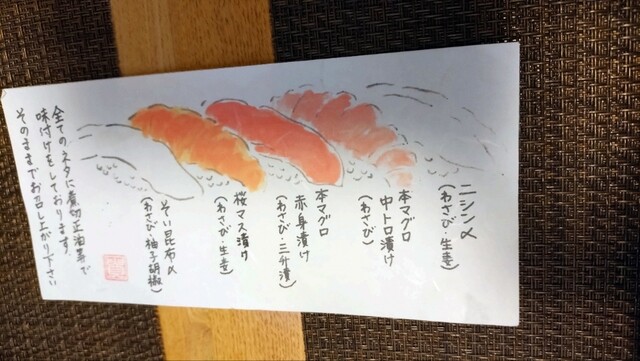 ニシン〆
(わさび・生姜)
本マグロ
中トロ漬け
(わさび)
本マグロ
赤身漬け
(わさび・三升漬)
桜マス漬け
(わさび・生姜)
そい昆布〆
(わさび・柚子胡椒)
全てのネタに煮切正油等で
味付けをしております。
そのままでお召し上がり下さい